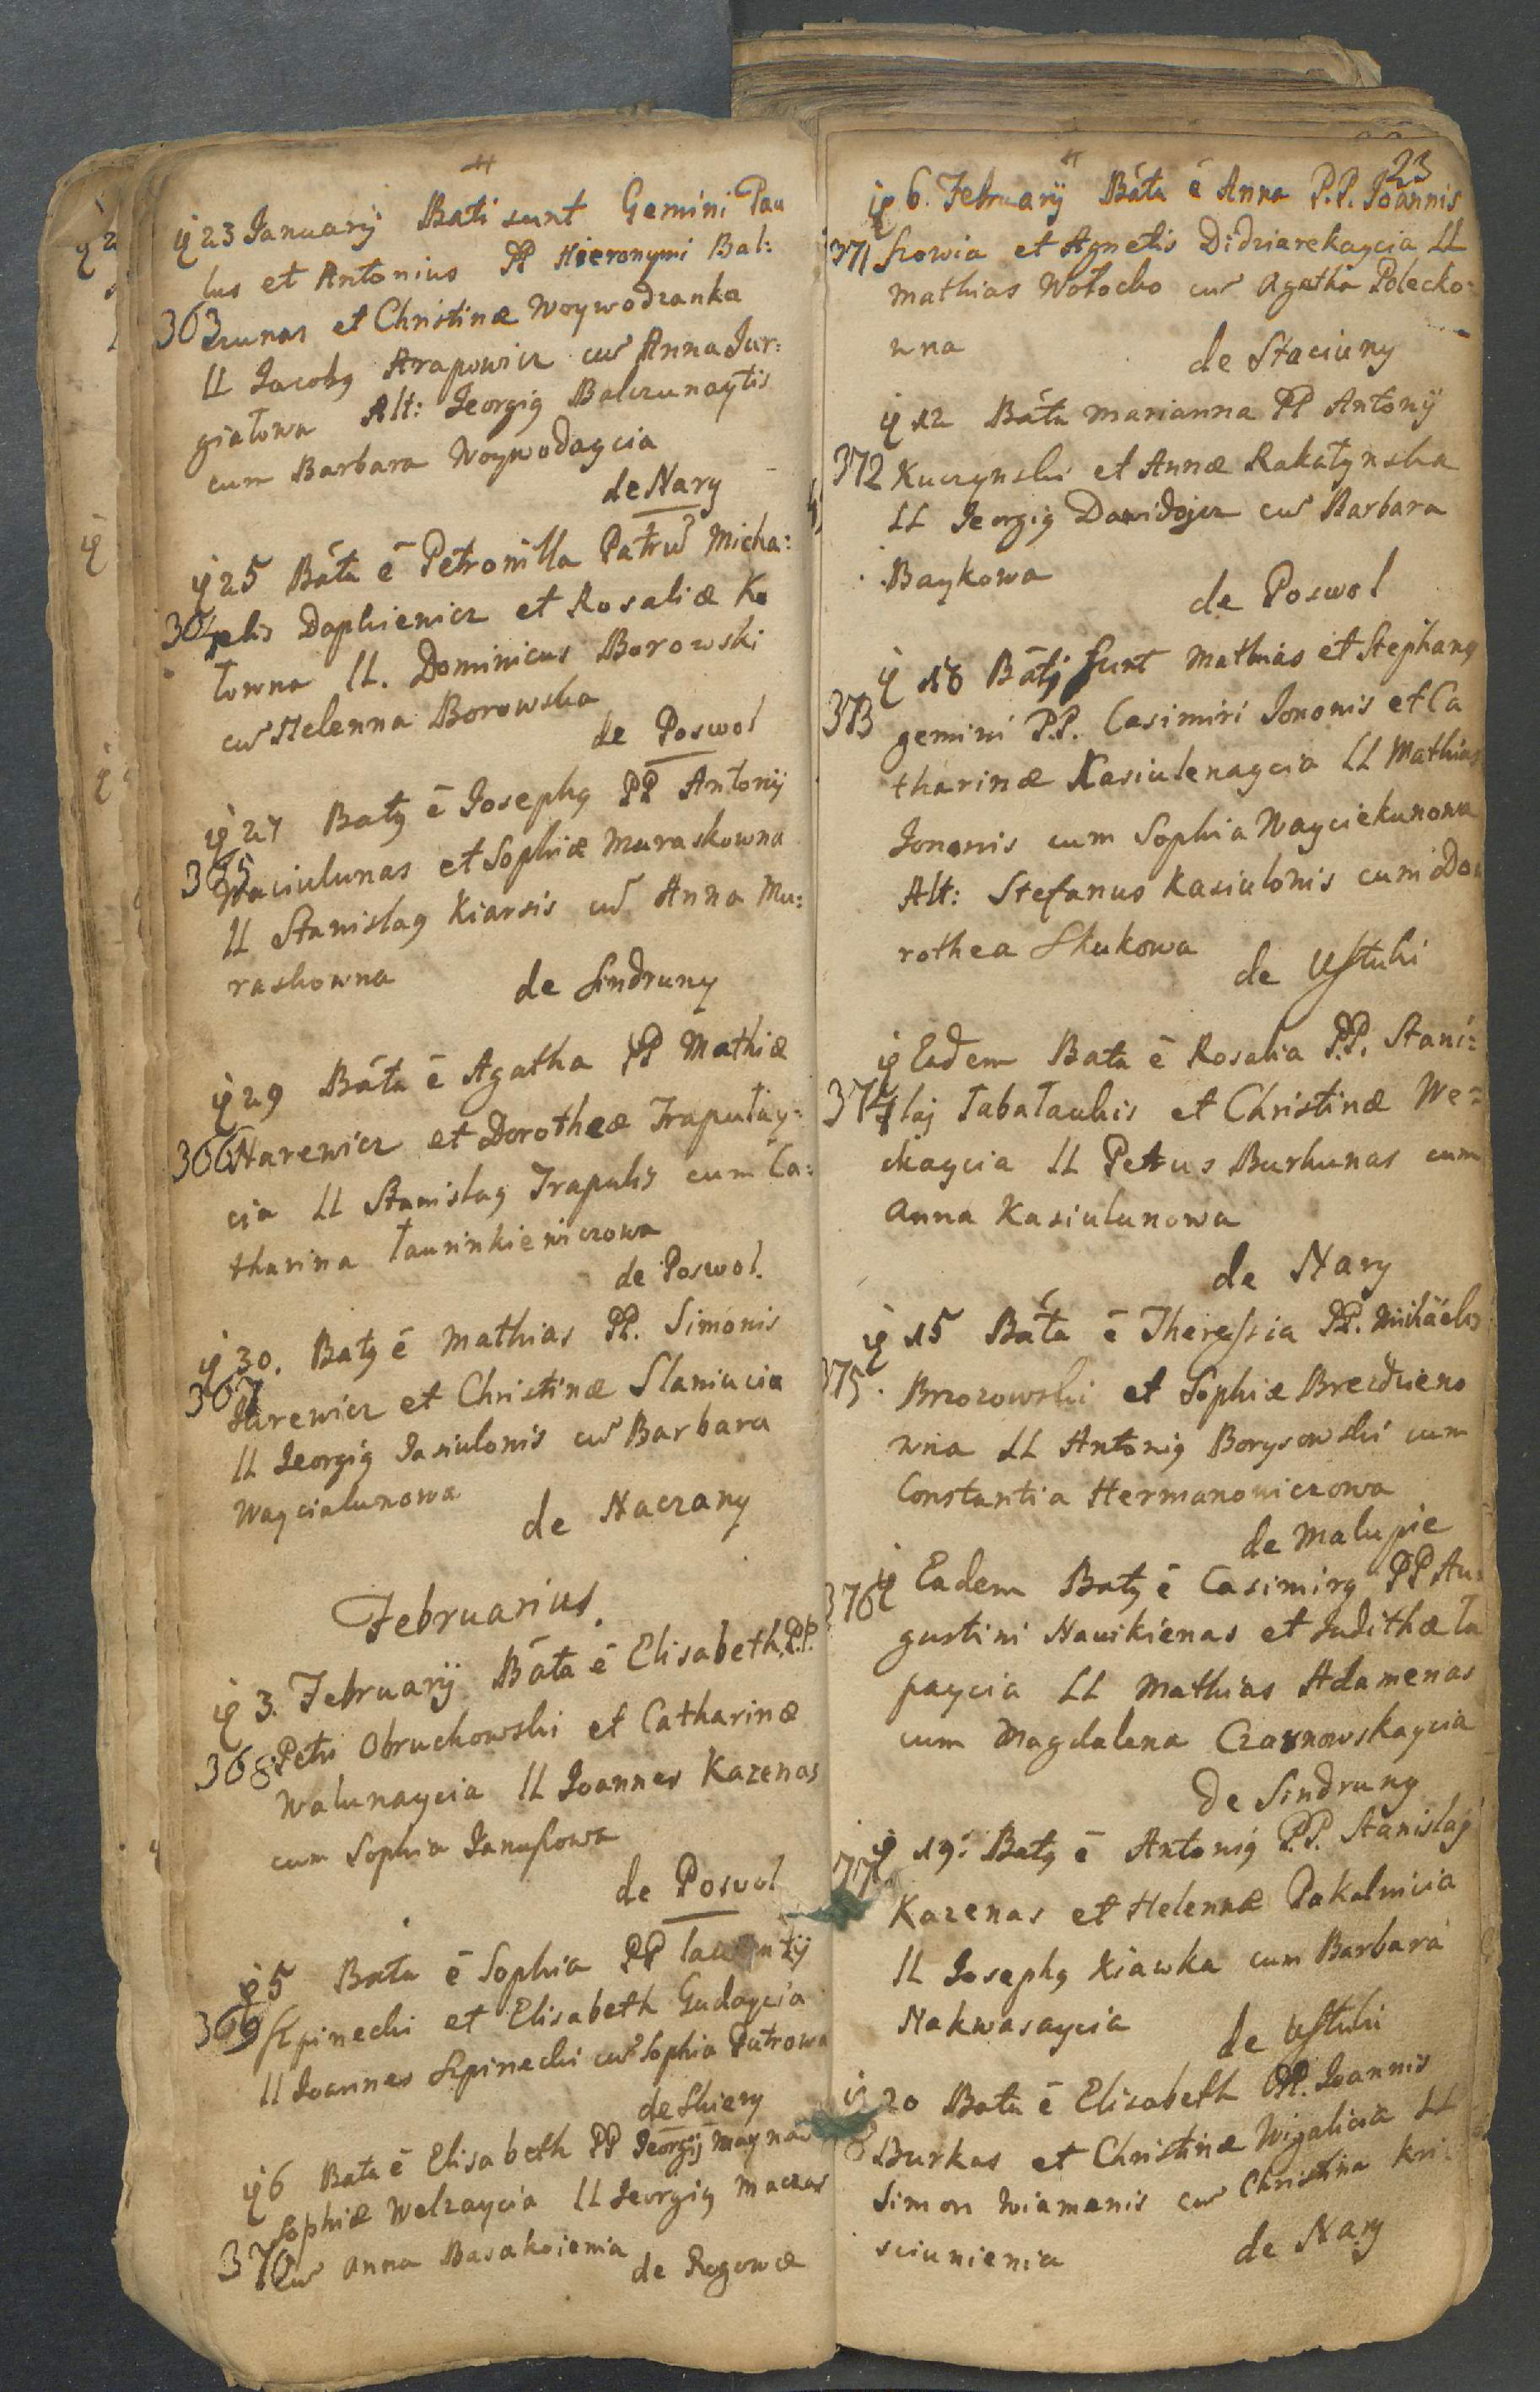 23 Januarÿ Bati sunt Gemini Pau
lus et Antonius PP Hieronymi Bal:
363 czunas et Christinæ Woywodzanka
LL Jacobꝯ Arapowicz cu͂ Anna Jur:
giałowa Alt: Georgiꝯ Balczunaytis
cum Barbara Woywodaycia
de Nary
25 Bāta ē Petronilla Patru͂ Micha:
364 elis Daplienicz et Rosaliæ Ko
łowna LL. Dominicus Borowski
cu͂ Helenna Borowska
de Poswol
27 Batꝯ ē Josephꝯ PP Antonÿ
365 Maciulunas et Sophiæ Muraskowna
LL Stanislaꝯ Kiarsis cu͂ Anna Mu:
raskowna
de Sindruny
29 Bāta ē Agatha PP Mathiæ
366 Narewicz et Dorotheæ Traputay:
cia LL Stanislaꝯ Trapulis cum Ca:
tharina Taurinkiewiczowa
de Poswol.
30. Batꝯ ē Mathias PP. Simonis
367 Jurewicz et Christinæ Slaniucia
LL Georgiꝯ Jasiulonis cu͂ Barbara
Waycialunowa
de Naczany
Februarius.
3. Februarÿ Bāta ē Elisabeth P.P.
368 Petri Obruchowski et Catharinæ
Walunaycia LL Joannes Kazenas
cum Sophia Janusowa
de Poswol
5 Bata ē Sophia PP Laurentÿ
369 Szpinecki et Elisabeth Gudaycia
LL Joannes Szpinecki cu͂ Sophia Putrowa
de Skiery
6 Bata ē Elisabeth PP Georgÿ Maynas
Sophiæ Welzaycia LL Georgiꝯ Maczas
370 cu͂ Anna Basakoienia
de Rogowæ
23
6. Februarÿ Bāta ē Anna P.P. Joannis
371 Szowia et Agnetis Didziarekaycia LL
Mathias Wołocko cu͂ Agatha Polecko:
wna
de Staciuny
12 Bāta Marianna PP Antonÿ
372 Kuczynski et Annæ Rakatynska
LL Georgiꝯ Dawidojcz cu͂ Barbara
Baykowa
de Poswol
18 Bāti Sunt Mathias et Stephanꝯ
373 gemini P.P. Casimiri Jononis et Ca
tharinæ Kasiulenaycia LL Mathias
Jononis cum Sophia Wayciekunowa
Alt: Stefanus Kasiulonis cum Do
rothea Skukowa
de Ustuki
Eadem Bata ē Rosalia P.P. Stani:
374 slaj Tabatauhis et Christinæ We:
ckaycia LL Petrus Burkunas cum
Anna Kasiulunowa
de Nary
15 Bāta ē Theressia PP. Michäelis
375 Brzozowski et Sophiæ Brezdzieno
wna LL Antoniꝯ Borysowski cum
Constantia Hermanowiczowa
de Malupie
376 Eadem Batꝯ ē Casimirꝯ PP Au:
gustini Nauikienas et Judithæ Ła
paycia LL Mathias Adamenas
cum Magdalena Czarnowskaycia
de Sindruny
77 19. Batꝯ ē Antoniꝯ P.P. Stanislaj
Kazenas et Helennæ Pakalnicia
LL Josephꝯ Kiawka cum Barbara
Nakwasaycia
de Ustuki
20 Bata ē Elisabeth PP. Joannis
8 Burkas et Christinæ Wigalicia LL
Simon Wiamenis cu͂ Christina Kri:
sciunienia
de Nary